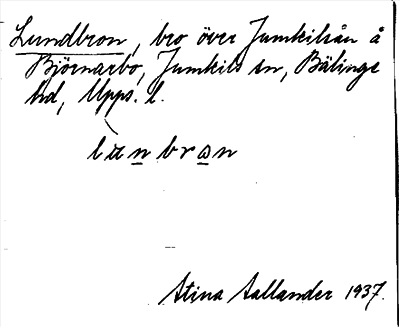 Lundbron, bro över Jumkilsån å
Björnarbo, Jumkils sn, Bälinge
hd, Upps. l.
lunbron
Stina Sallander 1937.